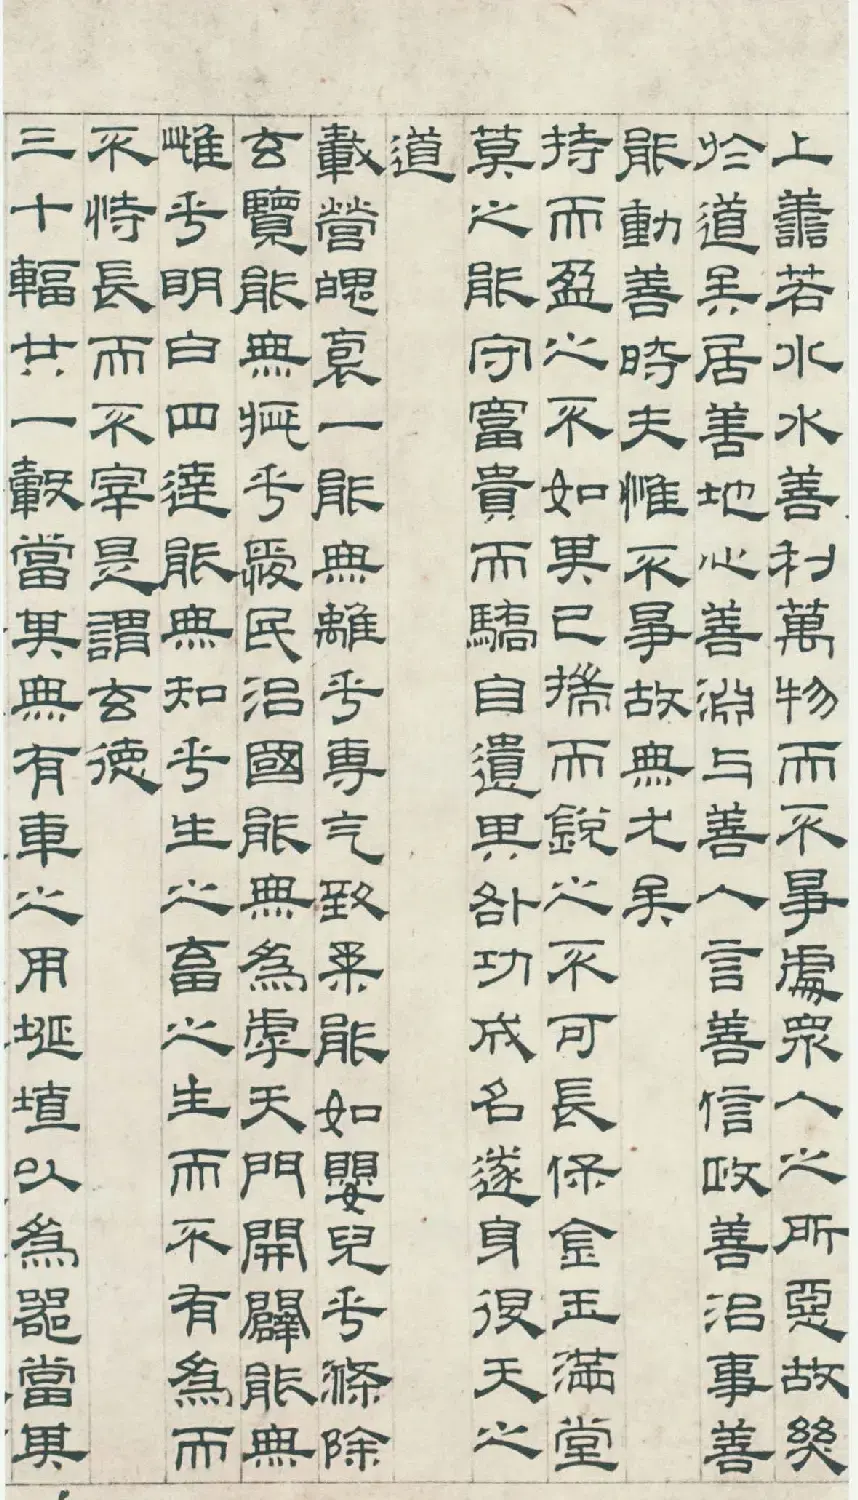 上善若水水善利萬物而不爭處衆人之所惡故幾
於道矣居善地心善淵与善人言善信政善治事善
能動善時夫惟不爭故無尤矣
持而盈之不如其已揣而銳之不可長保金玉滿堂
莫之能守富貴而驕自遺其咎功成名遂身退天之
道
載營魄袌一能無離乎專气致柔能如嬰兒乎滌除
玄覽能無疵乎愛民治國能無為虖天門開闢能無
雌乎明白四達能無知乎生之畜之生而不有為而
不恃長而不宰是謂玄德
三十輻共一轂當其無有車之用埏埴以為器當其